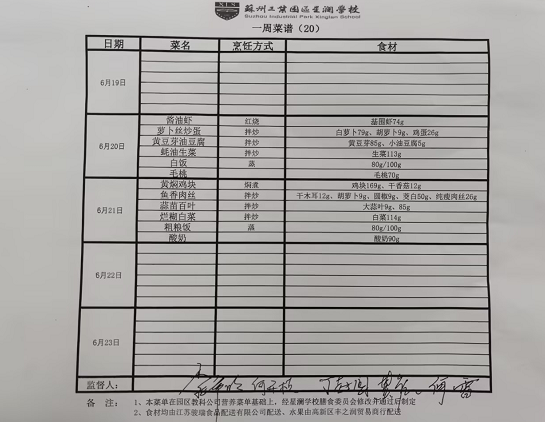 苏州工业园区星澜学校
Suzhou Industrial Park Xinglan School
一周菜谱（20）
日期 菜名 烹饪方式 食材
6月19日
6月20日
酱油虾 红烧 基围虾74g
萝卜丝炒蛋 拌炒 白萝卜79g、胡萝卜9g、鸡蛋26g
黄豆芽油豆腐 拌炒 黄豆芽85g、小油豆腐5g
蚝油生菜 拌炒 生菜113g
白饭 蒸 80g/100g
毛桃 毛桃70g
6月21日
黄焖鸡块 焖煮 鸡块169g、干香菇12g
鱼香肉丝 拌炒 干木耳12g、胡萝卜9g、圆椒9g、茭白50g、纯瘦肉丝26g
蒜苗百叶 拌炒 大蒜叶9g、85g
烂糊白菜 拌炒 白菜114g
粗粮饭 蒸 80g/100g
酸奶 酸奶90g
6月22日
6月23日
监督人：
备 注： 1、本菜单在园区教科公司营养菜单基础上，经星澜学校膳食委员会修改并通过后制定
2、食材均由江苏骏瑞食品配送有限公司配送、水果由高新区丰之润贸易商行配送